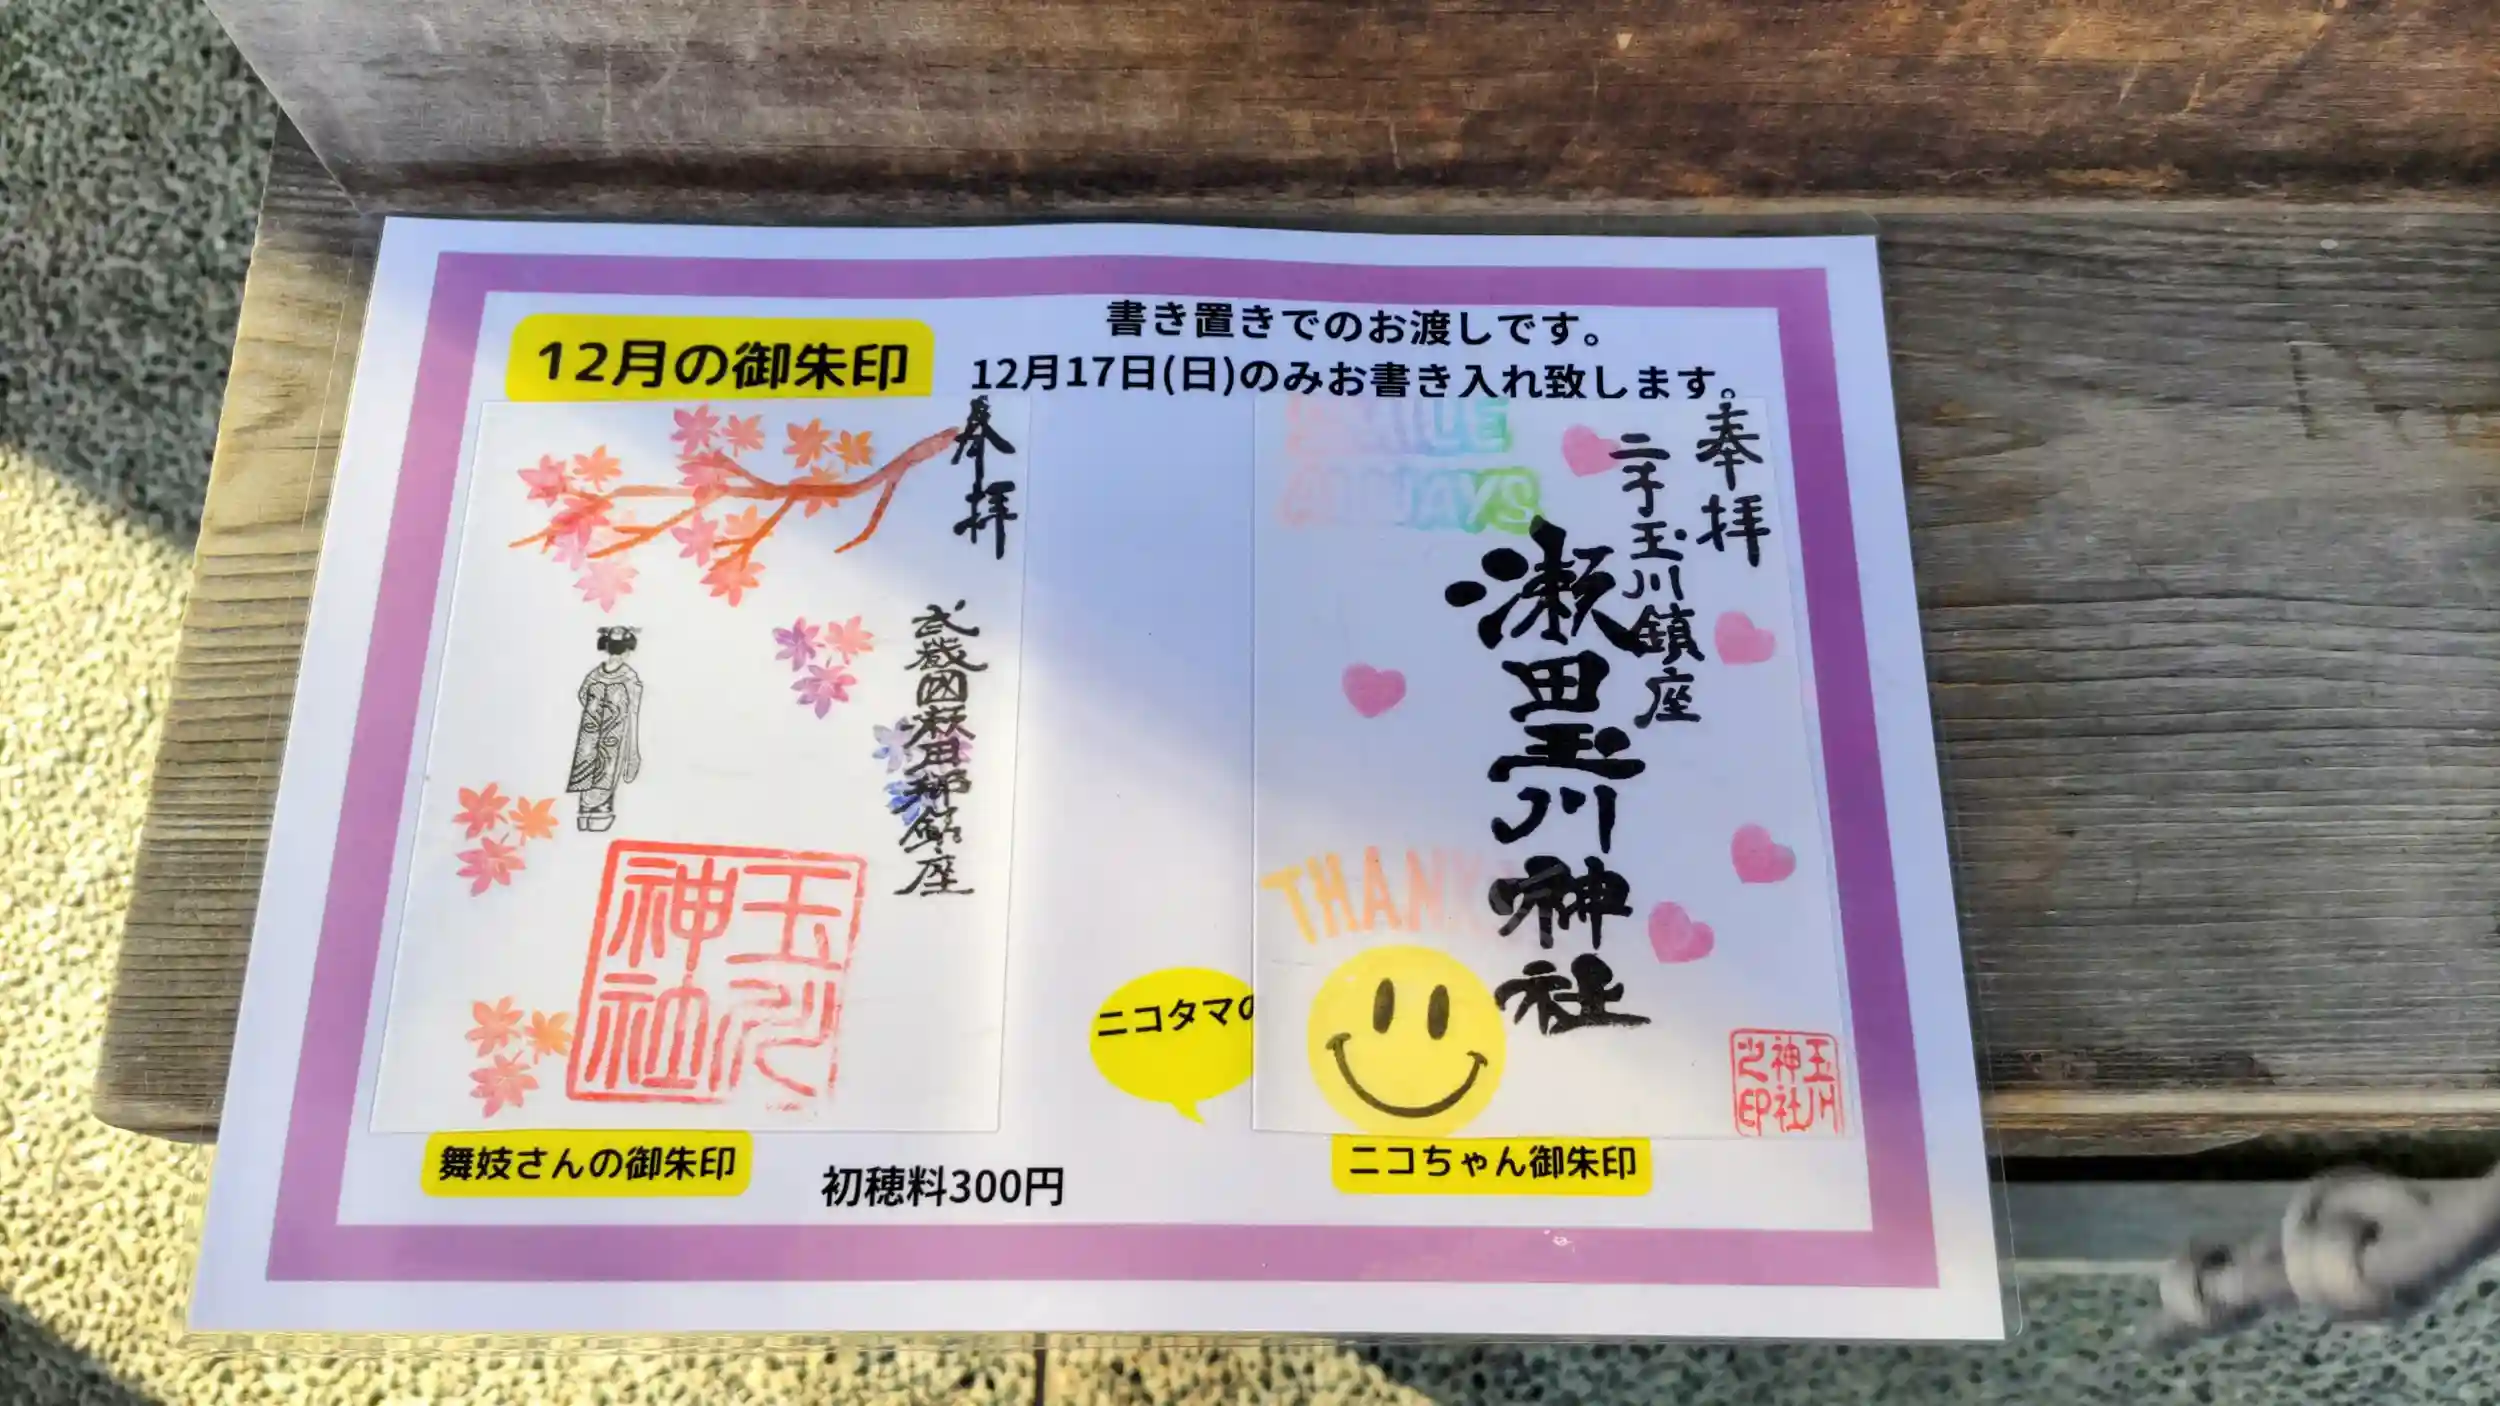 12月の御朱印
書き置きでのお渡しです。
12月17日(日)のみお書き入れ致します。
奉拝
武蔵國瀬田郷鎮座
玉川
神社
舞妓さんの御朱印
初穂料300円
ニコタマの
SMILE
ALWAYS
奉拝
二子玉川鎮座
瀬田玉川神社
THANK
玉川
神社
之印
ニコちゃん御朱印